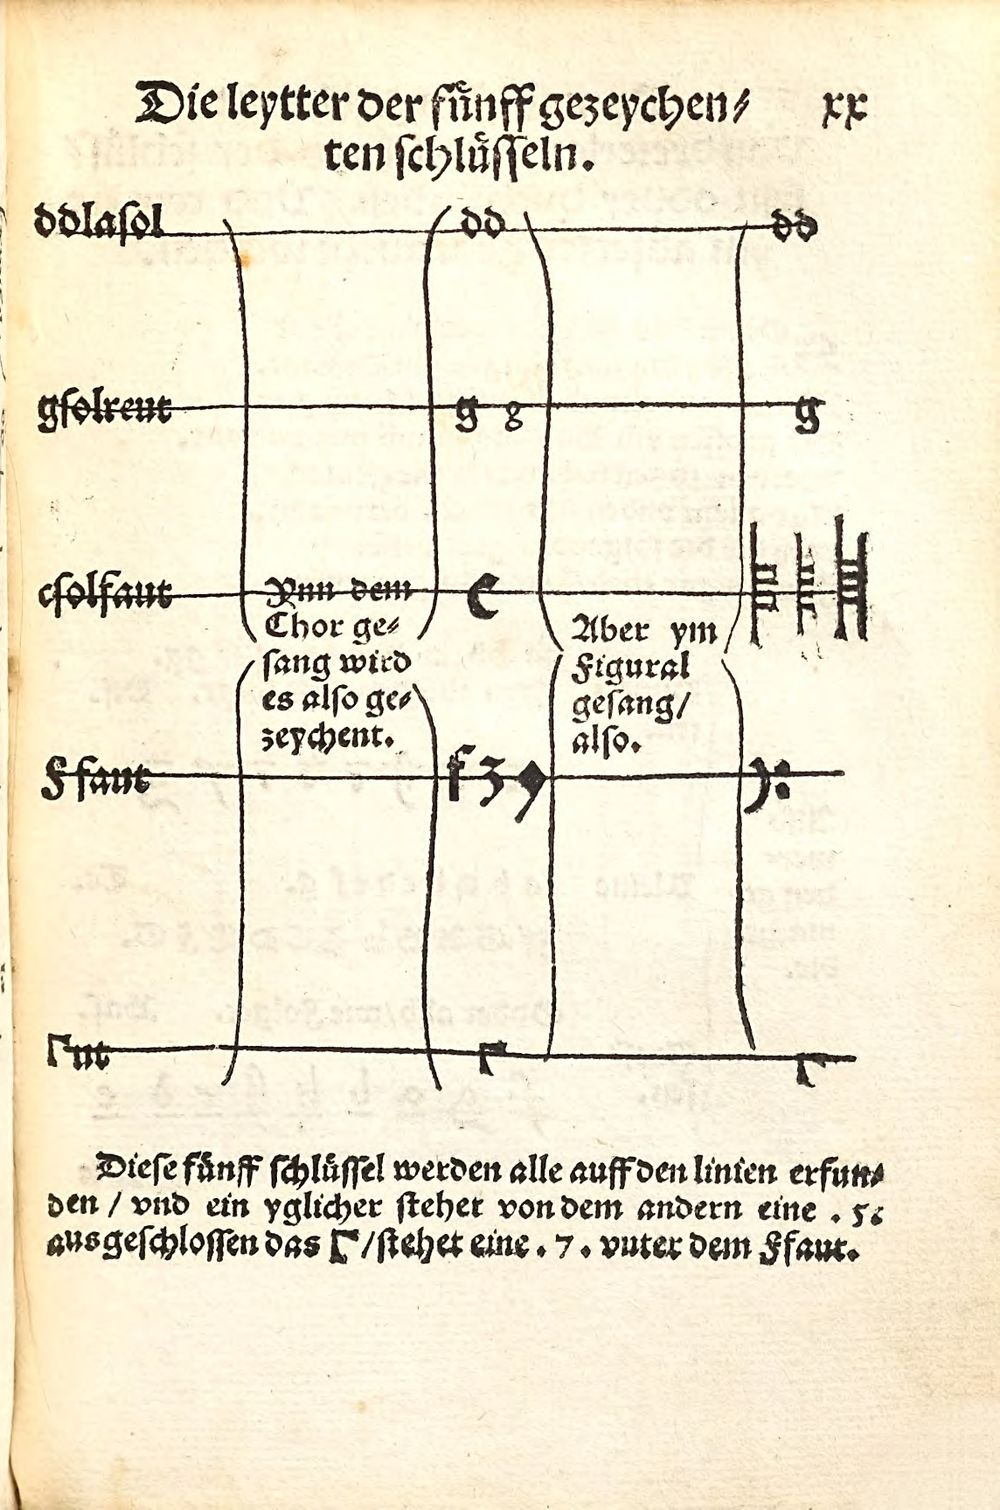 Die leytter der fuͤnff gezeychen⸗ xx
ten ſchluͤſſeln.
ddlaſol dd dd
gſolreut g g g
cſolfaut c
Ynn dem
Chor ge⸗
ſang wird
es alſo ge⸗
zeychent.
Aber ym
Figural
geſang/
alſo.
Ffaut f
Γut Γ Γ
Dieſe fuͤnff ſchluͤſſel werden alle auff den linien erfun⸗
den / vnd ein yglicher ſtehet von dem andern eine . 5.
ausgeſchloſſen das Γ/ſtehet eine . 7 . vnter dem Ffaut.